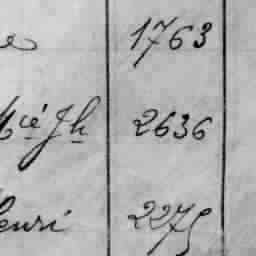 e 1763
Mié Jh 2636
Henri 2275